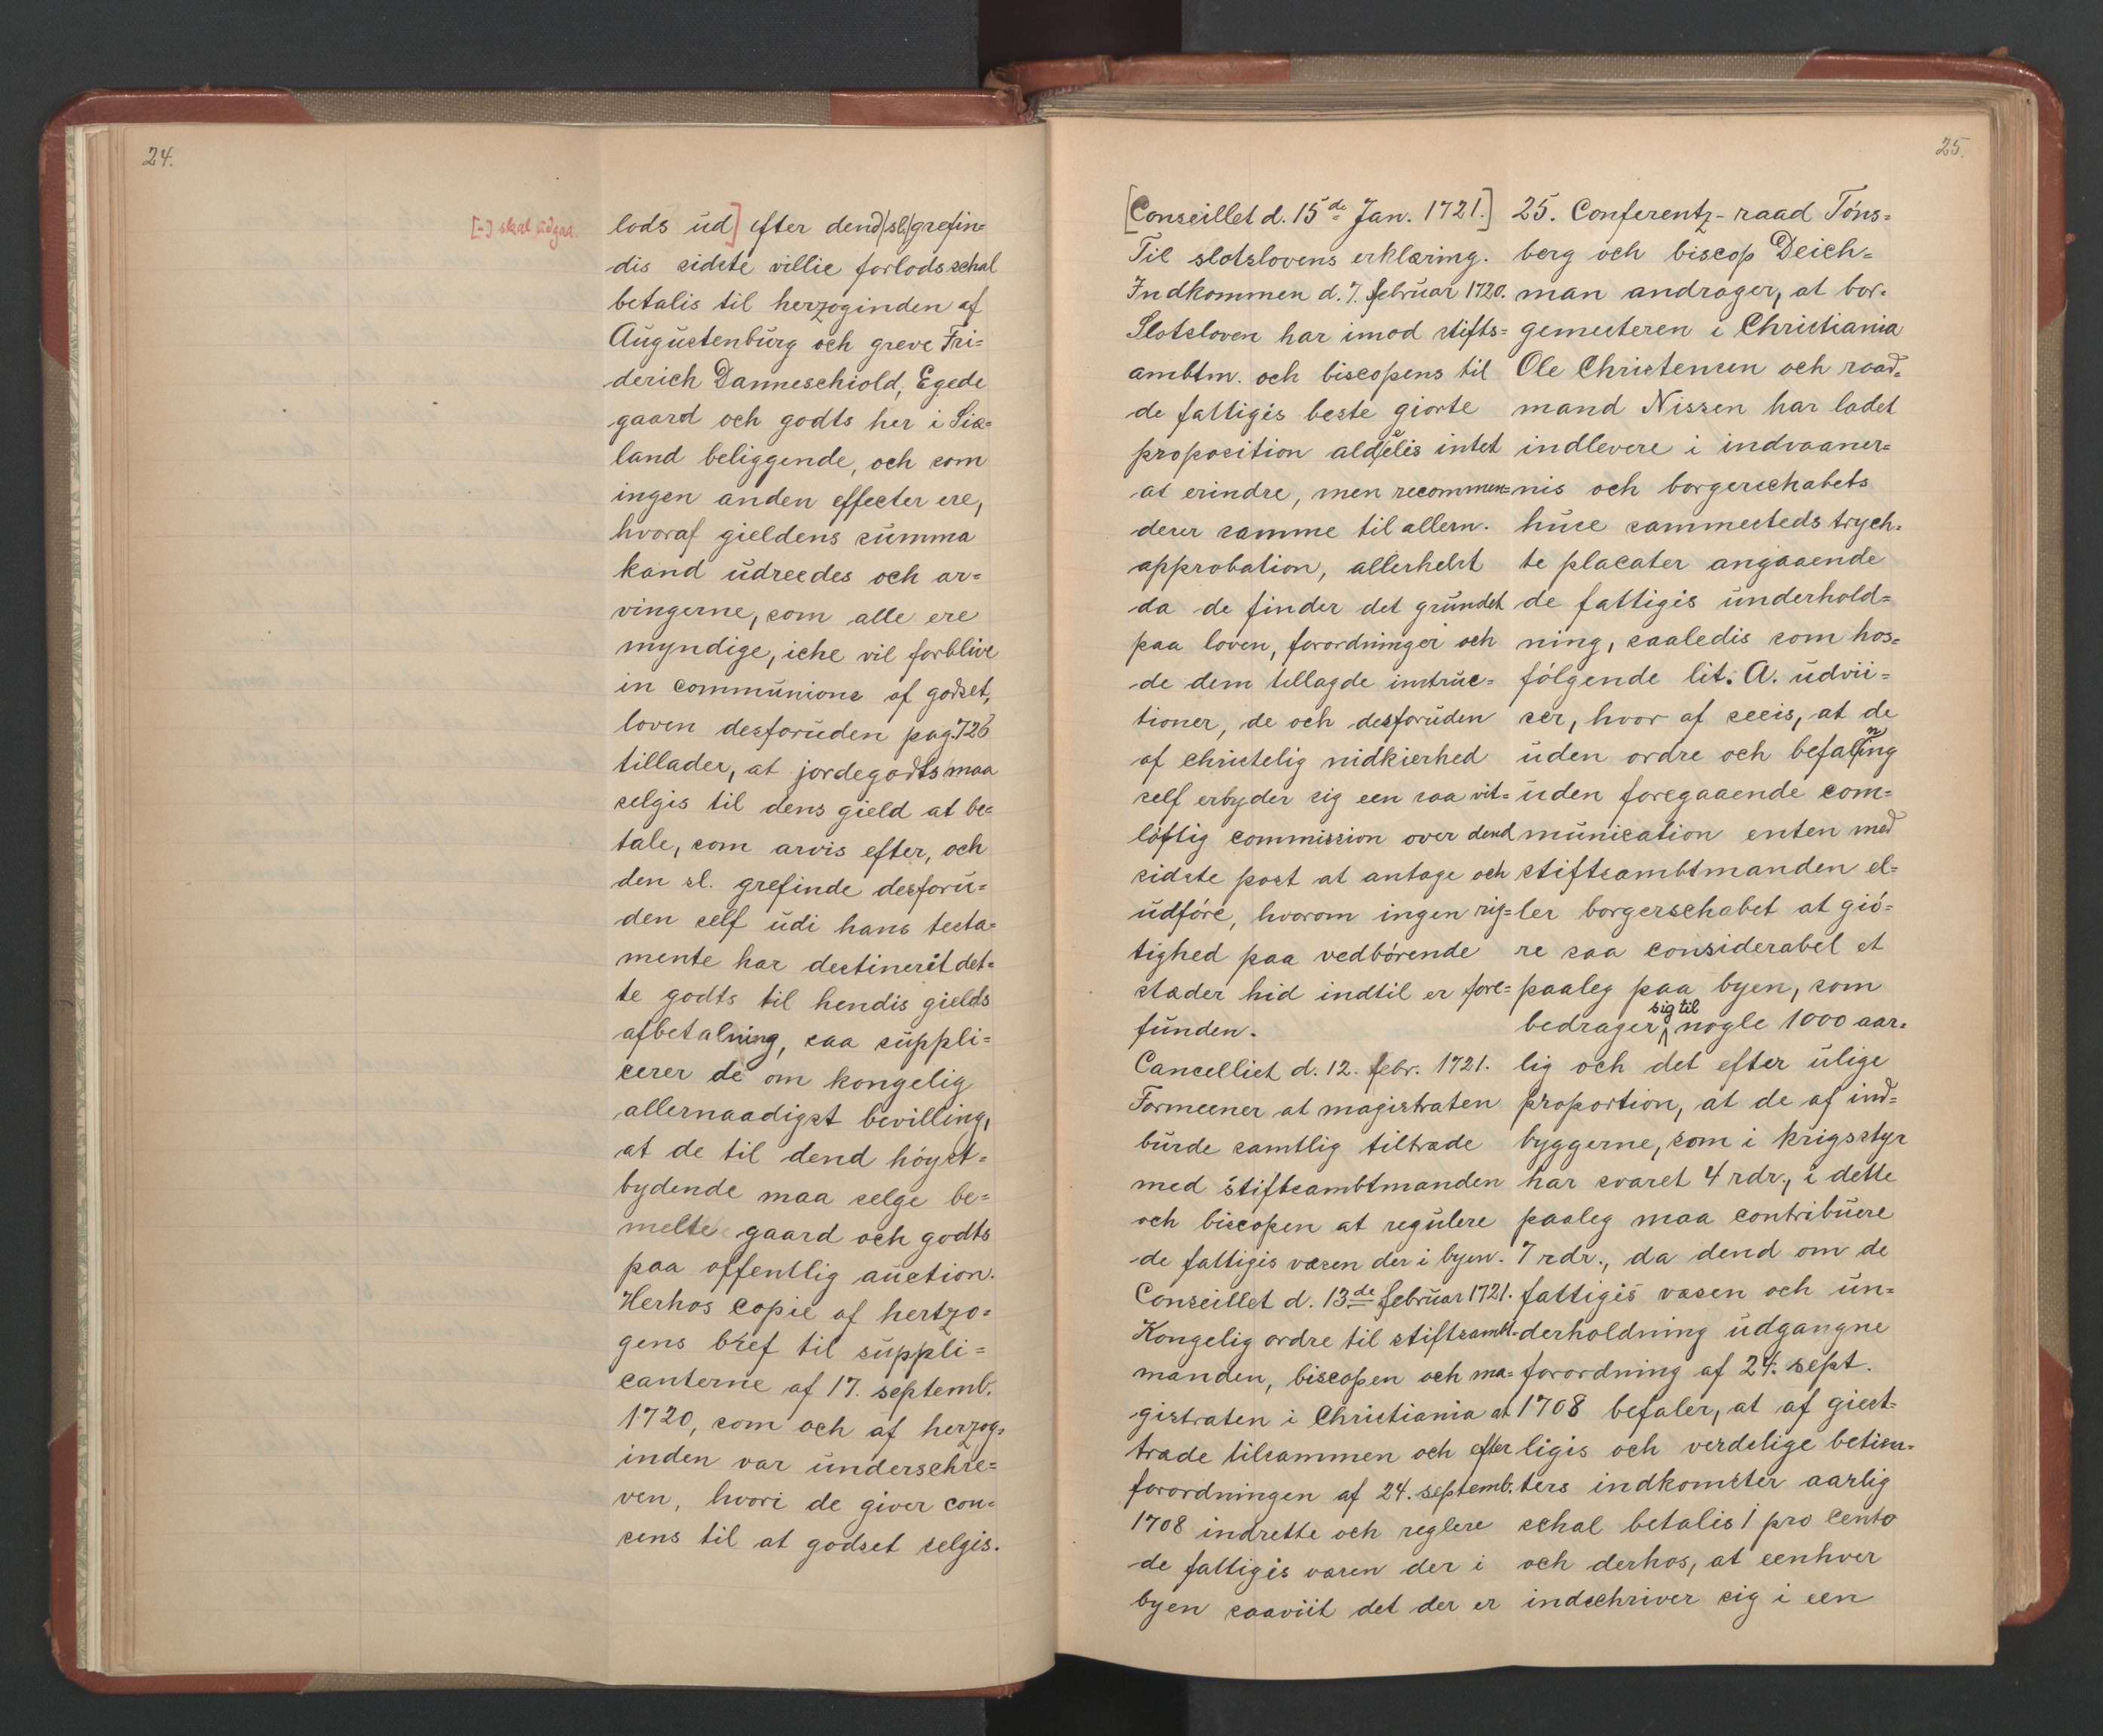 24.
[-] skal udgaa.
lods ud] efter dend (sl.) grefin=
dis sidste villie forlods schal
betalis til herzoginden af
Augustenburg och greve Fri=
derich Danneschiold, Egede
gaard och godts her i Siæ=
land beliggende, och som
ingen anden effecter ere,
hvoraf gieldens summa
kand udreedes och ar=
vingerne, som alle ere
myndige, iche vil forblive
in communione af godset,
loven desforuden pag. 726
tillader, at jordegodts maa
selgis til dens gield at be=
tale, som arvis efter, och
den sl. grefinde desforu=
den self udi hans testa=
mente har destinerit det=
te godts til hendis gields
afbetalning, saa suppli=
cerer de om kongelig
allernaadigst bevilling,
at de til dend höyst=
bydende maa selge be=
melte gaard och godts
paa offentlig auction.
Herhos copie af hertzo=
gens bref til suppli=
canterne af 17. septemb.
1720, som och af herzog=
inden var underschre=
ven, hvori de giver con=
sens til at godset selgis.
25.
[Conseillet d. 15de Jan. 1721.]
Til slotslovens erklæring.
Indkommen d. 7. februar 1720.
Slotsloven har imod stifts=
ambtm. och biscopens til
de fattigis beste giorte
proposition aldelis intet
at erindre, men recommen=
derer samme til allern.
approbation, allerhelst
da de finder det grundet
paa loven, forordninger och
de dem tillagde instruc=
tioner, de och desforuden
af christelig nidkierhed
self erbyder sig een saa vit=
löftig commission over dend
sidste post at antage och
udföre, hvorom ingen rig=
tighed paa vedbörende
stæder hid indtil er fore=
funden.
Cancelliet d. 12. febr. 1721.
Formeener at magistraten
burde samtlig tiltræde
med stiftsambtmanden
och biscopen at regulere
de fattigis væsen der i byen.
Conseillet d. 13de februar 1721.
Kongelig ordre til stiftsambt=
manden, biscopen och ma=
gistraten i Christiania at
træde tilsammen och efter
forordningen af 24. septemb.
1708 indrette och reglere
de fattigis væsen der i
byen saaviit det der er
25. Conferentz-raad Töns=
berg och biscop Deich=
man andrager, at bor=
gemesteren i Christiania
Ole Christensen och raad=
mand Nissen har ladet
indlevere i indvaaner=
nis och borgerschabets
huse sammesteds trych=
te placater angaaende
de fattigis underhold=
ning, saaledis som hos=
fölgende lit. A. udvii=
ser, hvor af seeis, at de
uden ordre och befaling
uden foregaaende com=
munication enten med
stiftsambtmanden el=
ler borgerschabet at giö=
re saa considerabel et
paaleg paa byen, som
bedrager sig til nogle 1000 aar=
lig och det efter ulige
proportion, at de af ind=
byggerne, som i krigsstyr
har svaret 4 rdr., i dette
paaleg maa contribuere
7 rdr., da dend om de
fattigis væsen och un=
derholdning udgangne
forordning af 24. sept.
1708 befaler, at af giest=
ligis och verdslige betien=
ters indkomster aarlig
schal betalis 1 pro cento
och derhos, at eenhver
indschriver sig i een